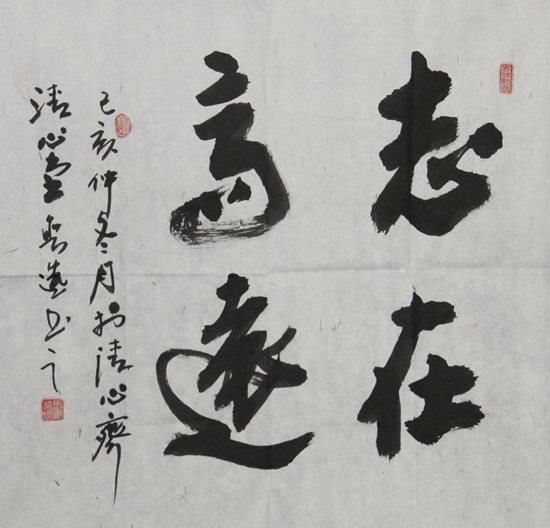 志在
高遠
己亥仲冬月於清心齋
清心堂 遠書之